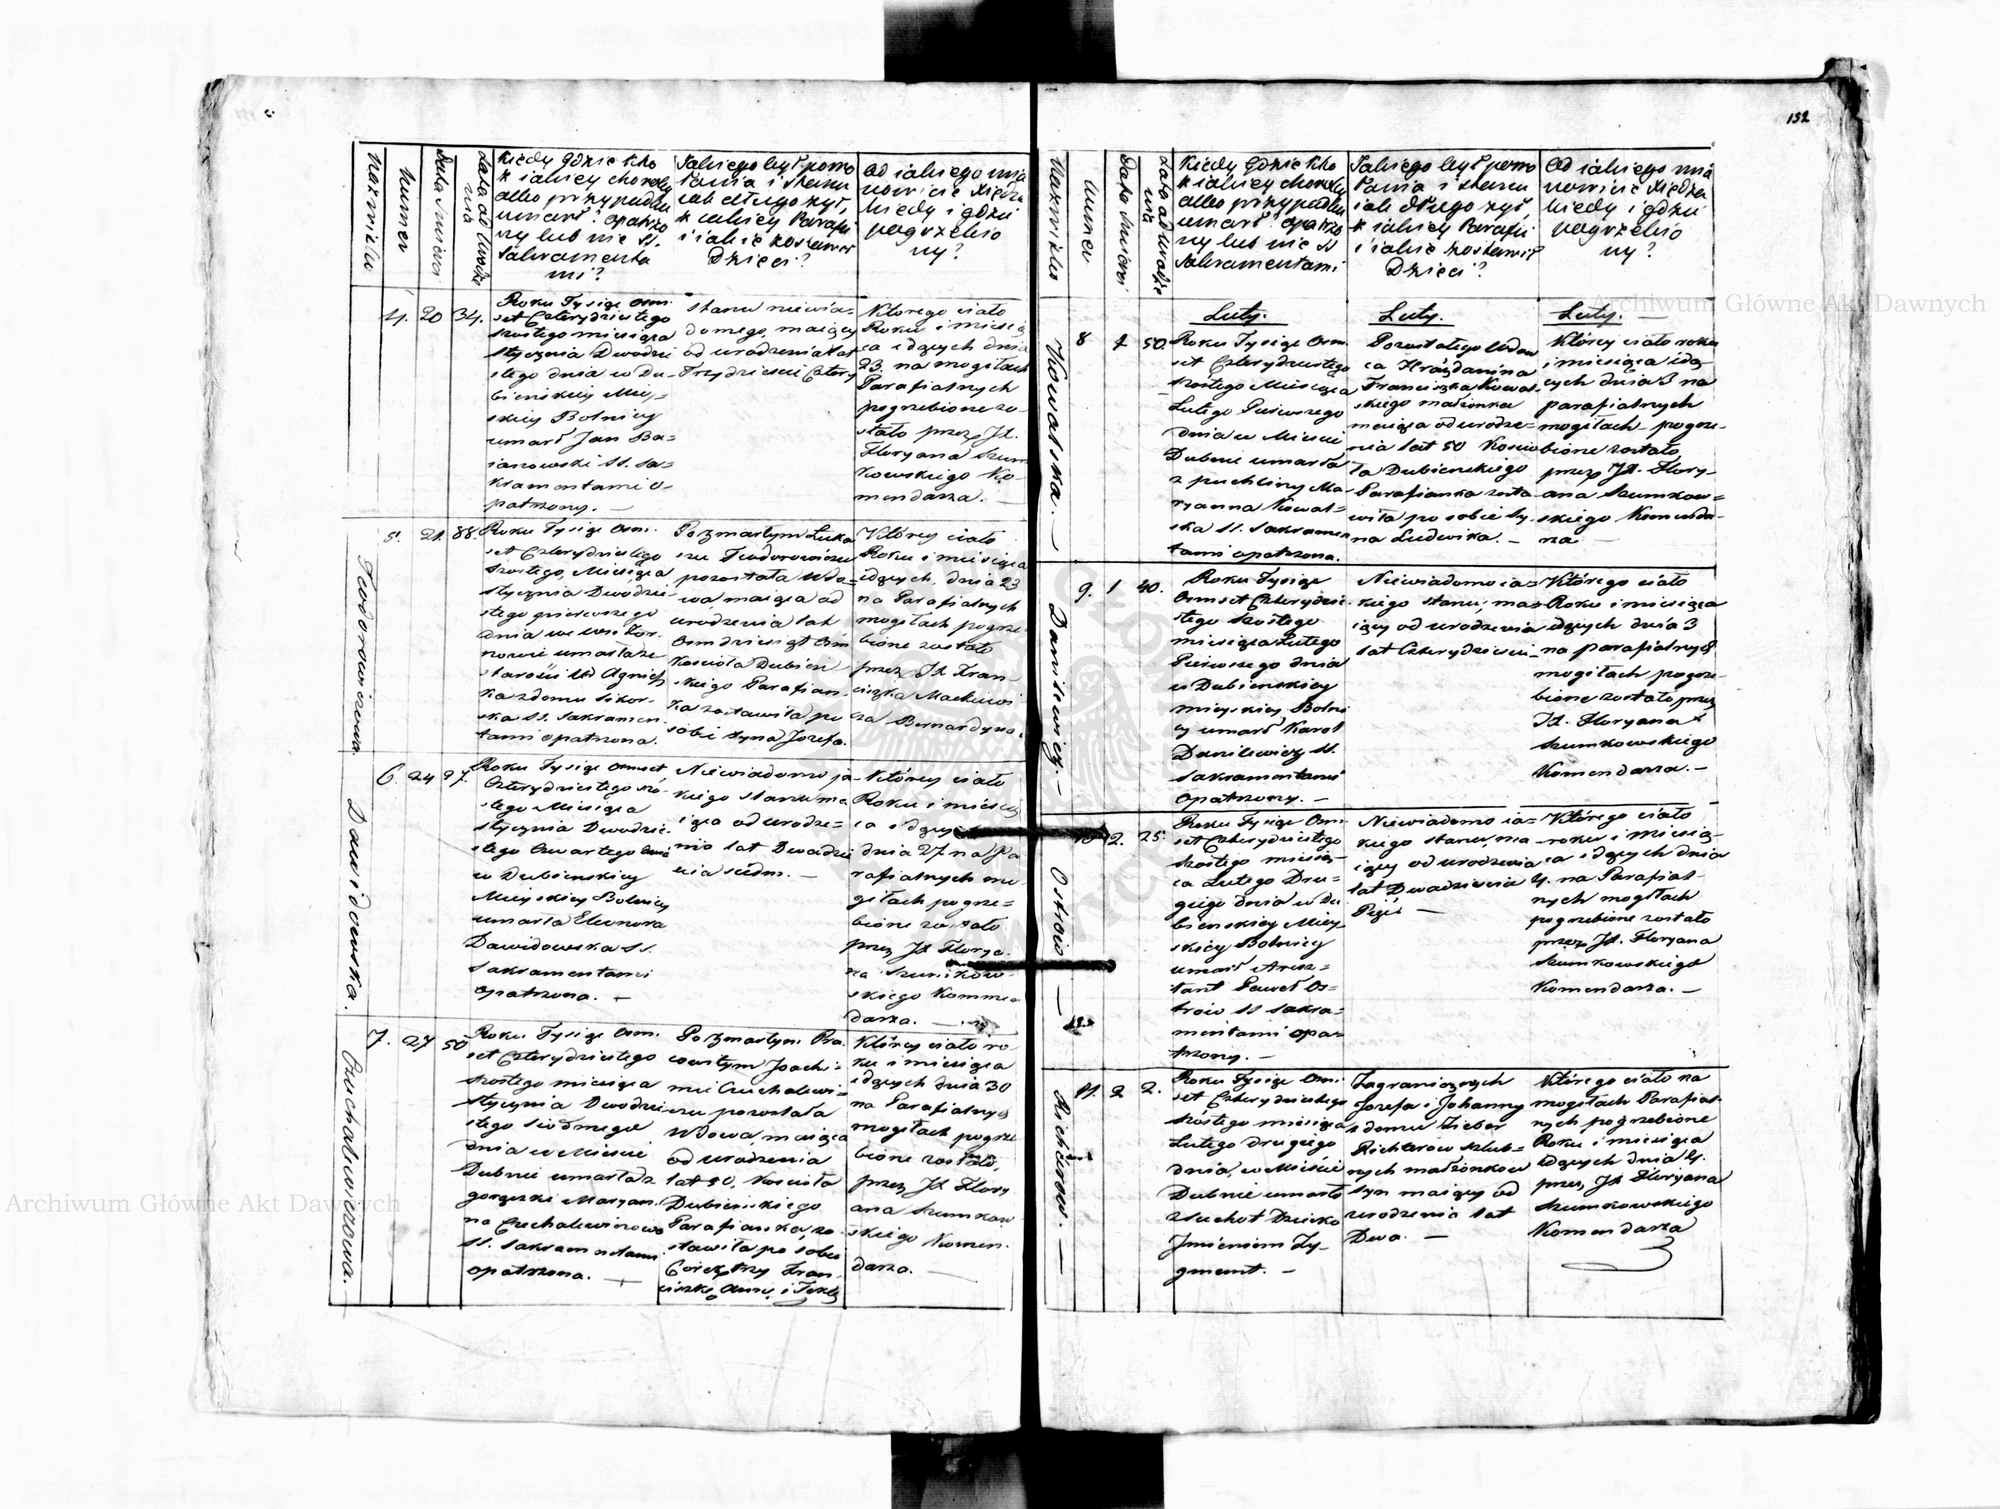 132
Nazwisko
Numer
Data Śmierci
Lata od Urodzenia
Kiedy gdzie kto
z iakiey choroby
albo przypadku
umarł? opatrzo
ny lub nie SS.
Sakramenta
mi?
Jakiego był powo
łania i stanu
iak długo żył,
z iakiey Parafii
i iakie zostawił
Dzieci?
Od iakiego mia
nowicie Xiędza
kiedy i gdzie
pogrzebio
ny?
4. 20 34.
Roku Tysiąc Osm
set Czterydziestego
szostego miesiąca
Stycznia Dwódzie
stego dnia w Du-
bieńskiey Miey=
skiey Bolnicy
umarł Jan Ba=
ianowski SS. Sa=
kramentami o-
patrzony. —
stanu niewia-
domego, maiący
od urodzenia lat
Trzydzieści Cztery
Którego ciało
Roku i miesią
ca idących dnia
23. na mogiłach
Parafialnych
pogrzebione zo-
stało przez JX.
Floryana Szum
kowskiego Ko-
mendarza. —
Teodorowiczowa
5. 21. 88.
Roku Tysiąc Osm.
set Czterydziestego
Szostego, Miesiąca
Stycznia Dwódzie-
stego pierwszego
dnia we wsi
nowie umarła ze
starości Agniesz
ka z domu Sikor-
ska SS. Sakramen-
tami opatrzona.
Po zmarłym Łuka
szu Teodorowiczu
pozostała Wdo=
wa maiąca od
urodzenia lat
Osmdziesiąt Osm
Kościoła Dubień
skiego Parafian-
ka zostawiła po
sobie syna Jozefa.
Którey ciało
Roku i miesiąca
idących, dnia 23
na Parafialnych
mogiłach pogrze-
bione zostało
przez JX. Fran-
ciszka
Bernardyna.
Dawidowska.
6. 24 27.
Roku Tysiąc Osmset
Czterydziestego szo-
stego Miesiąca
Stycznia Dwódzie-
stego Czwartego dnia
w Dubieńskiey
Mieyskiey Bolnicy
umarła Eleonora
Dawidowska SS.
Sakramentami
opatrzona. —
Niewiadomo ja-
kiego stanu ma
iąca od urodze=
nia lat Dwadzie
ścia siedm. —
Którey ciało
Roku i miesią
ca idących
dnia 27 na Pa
rafialnych mo-
giłach pogrze=
bione zostało
przez JX Florya-
na Szumkow-
skiego Kommen
darza. —
Czuchalewiczowa.
7. 27 50
Roku Tysiąc Osm.
set Czterydziestego
szostego miesiąca
Stycznia Dwódzie
stego Siódmego
dnia w Mieście
Dubnie umarła z
gorączki Maryan.
na Czuchalewiczowa
SS. Sakramentami
opatrzona. —
Po zmarłym Pra.
cowitym Joachi-
mie Czuchalewi-
czu pozostała
Wdowa, maiąca
od urodzenia
lat 50. Kościoła
Dubieńskiego
Parafianka, zo-
stawiła po sobie
Córek trzy Fran-
ciszkę, Annę i Teklę
Którey ciało ro-
ku i miesiąca
idących dnia 30
na Parafialnych
mogiłach pogrze-
bione zostało,
przez JX Flory
ana Szumkow
skiego Komen-
darza. —
Nazwisko
Numer
Data Śmierci
Lata od Urodzenia
Kiedy Gdzie kto
z iakiey choroby
albo przypadku
umarł? opatrzo
ny lub nie SS
Sakramentami
Jakiego był powo
łania i stanu
iak długo żył,
z iakiey Parafii
i iakie zostawił
Dzieci?
Od iakiego mia
nowicie Xiędza
kiedy i gdzie
pogrzebio
ny?
Luty.
Luty.
Luty. —
Kowalska. —
8 1 50
Roku Tysiąc Osm
set Czterydziestego
szostego Miesiąca
Lutego Pierwszego
dnia w Mieście
Dubnie umarła
z puchliny Ma-
ryanna Kowal-
ska SS. Sakramen
tami opatrzona.
Pozostałego Wdow
ca
Franciszka Kowal-
skiego małżonka
maiąca od urodze=
nia lat 50 Kościo
ła Dubieńskiego
Parafianka zosta
wiła po sobie Sy-
na Ludwika. —
Którey ciało roku
i miesiąca idą
cych dnia 3 na
parafialnych
mogiłach pogrze-
bione zostało,
przez JX. Flory-
ana Szumkow=
skiego Komenda-
rza —
Danilewicz. —
9. 1 40.
Roku Tysiąc
Osmset Czterydzie-
stego szostego
miesiąca Lutego
Pierwszego dnia
w Dubieńskiey
mieyskiey Bolni
cy umarł Karol
Danilewicz SS.
Sakramentami
Opatrzony. —
Niewiadomo ia-
kiego stanu, ma=
iący od urodzenia
lat Czterydzieści
Którego ciało
Roku i miesiąca
idących dnia 3
na parafialnych
mogiłach pogrze-
bione zostało przez
JX. Floryana
Szumkowskiego
Komendarza. —
Ostrow —
10 2. 25.
Roku Tysiąc Osm-
set Czterydziestego
szostego miesią-
ca Lutego Dru-
giego dnia w Du
bieńskiey Miey
skiey Bolnicy
umarł Aresz=
tant Paweł Os=
trow SS Sakra-
mentami opa-
trzony. —
Niewiadomo ia=
kiego stanu, ma-
iący od urodzenia
lat Dwadzieścia
Pięć —
Którego ciało
roku i miesią-
ca idących dnia
4. na Parafial-
nych mogiłach
pogrzebione zostało
przez JX. Floryana
Szumkowskiego
Komendarza. —
Richterow. —
11. 2 2.
Roku Tysiąc Osm-
set Czterydziestego
szóstego miesiąca
Lutego drugiego
dnia, w Mieście
Dubnie umarło
z suchot Dziecko
Jmieniem Zy-
gmunt. —
Zagranicznych
Jozefa i Johanny
z domu Lieber
Richterow szlub=
nych małżonkow
syn maiący od
urodzenia lat
Dwa. —
Którego ciało na
mogiłach Parafial-
nych pogrzebione
Roku i miesiąca
idących dnia 4.
przez JX Floryana
Szumkowskiego
Komendarza
Archiwum Główne Akt Dawnych
Archiwum Główne Akt Dawnych